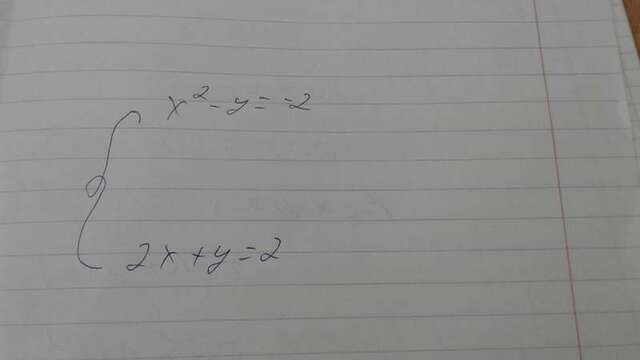 x² - y = -2
2x + y = 2